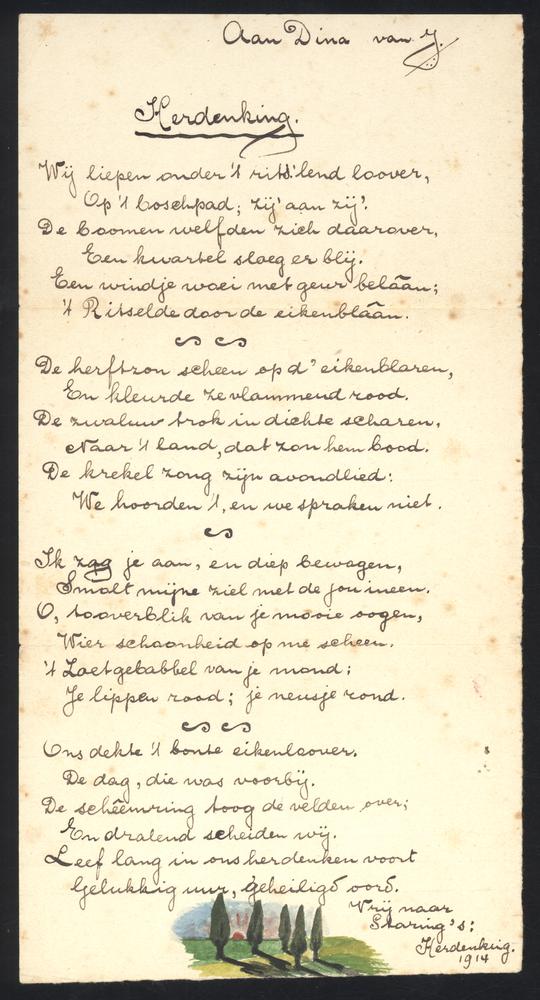 Aan Dina van Y.
Herdenking.
Wij liepen onder 't rits'lend loover,
Op 't boschpad; zij' aan zij'.
De boomen welfden zich daarover,
Een kwartel sloeg er blij.
Een windje woei met geur belâan;
't Ritselde door de eikenblâan.
De herfstzon scheen op d' eikenblaren,
En kleurde ze vlammend rood.
De zwaluw trok in dichte scharen,
Naar 't land, dat zon hem bood.
De krekel zong zijn avondlied:
We hoorden 't, en we spraken niet.
Ik zag je aan, en diep bewogen,
Smolt mijne ziel met de jou ineen.
O, tooverblik van je mooie oogen,
Wier schoonheid op me scheen.
't Zoet gebabbel van je mond;
Je lippen rood; je neusje rond.
Ons dekte 't bonte eikenloover.
De dag, die was voorbij.
De schêemring toog de velden over;
En dralend scheiden wij.
Leef lang in ons herdenken voort
Gelukkig uur, geheiligd oord.
Vrij naar
Staring's:
Herdenking.
1914